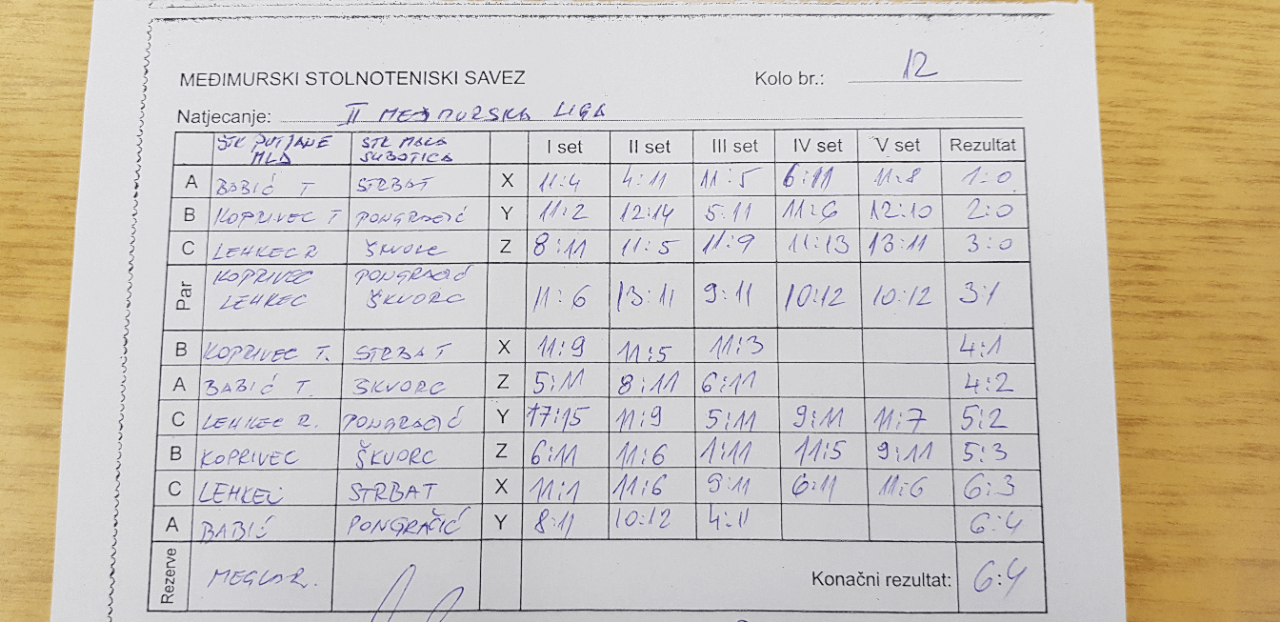 MEĐIMURSKI STOLNOTENISKI SAVEZ Kolo br.: 12
Natjecanje: II MEĐMURSKA LIGA
ŠTK PUTJANE MLD STK MALA SUBOTICA I set II set III set IV set V set Rezultat
A BABIĆ T STRBAT X 11:4 4:11 11:5 6:11 11:8 1:0
B KOPRIVEC T PONGRACIĆ Y 11:2 12:14 5:11 11:6 12:10 2:0
C LEHKEC R ŠKVORC Z 8:11 11:5 11:9 11:13 13:11 3:0
Par KOPRIVEC LEHKEC PONGRACIĆ ŠKVORC 11:6 13:11 9:11 10:12 10:12 3:1
B KOPRIVEC T. STRBAT X 11:9 11:5 11:3 4:1
A BABIĆ T. SKVORC Z 5:11 8:11 6:11 4:2
C LEHKEC R. PONGRACIĆ Y 17:15 11:9 5:11 9:11 11:7 5:2
B KOPRIVEC ŠKVORC Z 6:11 11:6 1:11 11:5 9:11 5:3
C LEHKEC STRBAT X 11:1 11:6 9:11 6:11 11:6 6:3
A BABIĆ PONGRAČIĆ Y 8:11 10:12 4:11 6:4
Rezerve MEGLA R. Konačni rezultat: 6:4